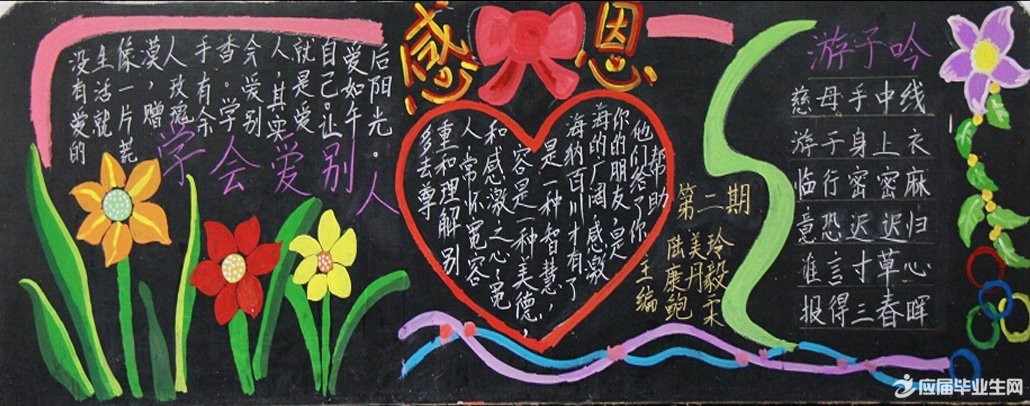 感恩
没有爱的
生活就
像一片荒
漠,赠
人玫瑰
手有余
香。学
会爱别
人,其实
就是爱
自己。让
爱如午
后阳光。
学会爱别人
多去尊
重和理解别
人,常怀宽容
和感激之心,宽
容是一种美德,
是一种智慧,
海纳百川才有了
海的广阔;感激
你的朋友,是
他们给了你
帮助
第二期
主编
陆美玲
康丹毅
鲍
游子吟
慈母手中线
游子身上衣
临行密密麻
意恐迟迟归
谁言寸草心
报得三春晖
应届毕业生网